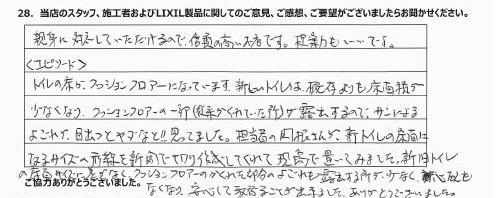 28. 当店のスタッフ、施工者およびLIXIL製品に関してのご意見、ご感想、ご要望がございましたらお聞かせください。
親身に対応していただけるので、信頼の高いお店です。提案力もいいです。
<エピソード>
トイレの床が、クッションフロアーになっています。新しいトイレは、既存よりも床面積が
少なくなり、クッションフロアーの一部(便器がくれていた所)が露出するので、サンによる
よごれが、目立つとやだなと!!思ってました。担当の さんが、新トイレの床面に
なるサイズの 線を新聞で切り作成してくれて現場で置いてみました。新旧トイレ
の床面サイズに差がなく、クッションフロアーのかくれた部分のよごれも露出する所が、少なく、 心配も
ご協力ありがとうございました。
なくなり、安心して取替ることが出来ました。ありがとうございました。